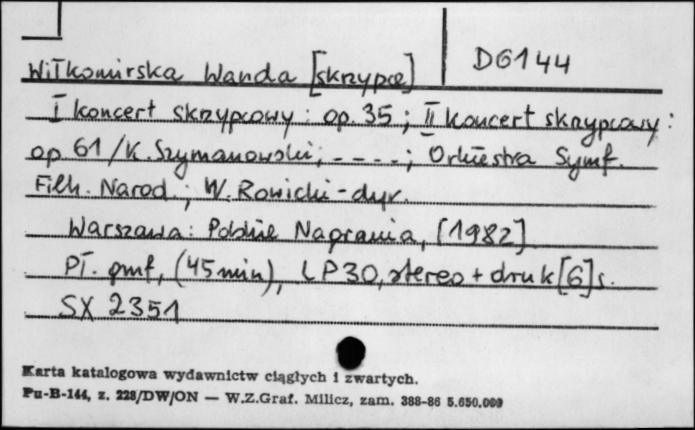 D6144
Wiłkomirska Wanda [skrzypce]
I koncert skrzypcowy : op. 35 ; II koncert skrzypcowy :
op. 61 / K. Szymanowski ; - - - - ; Orkiestra Symf.
Filh. Narod. ; W. Rowicki - dyr.
Warszawa : Polskie Nagrania, [1982]
Pł. gmf, (45 min), LP 30, stereo + druk [6] s.
SX 2351
Karta katalogowa wydawnictw ciągłych i zwartych.
Pu-B-144, z. 228/DW/ON — W.Z.Graf. Milicz, zam. 388-86 5.650.000